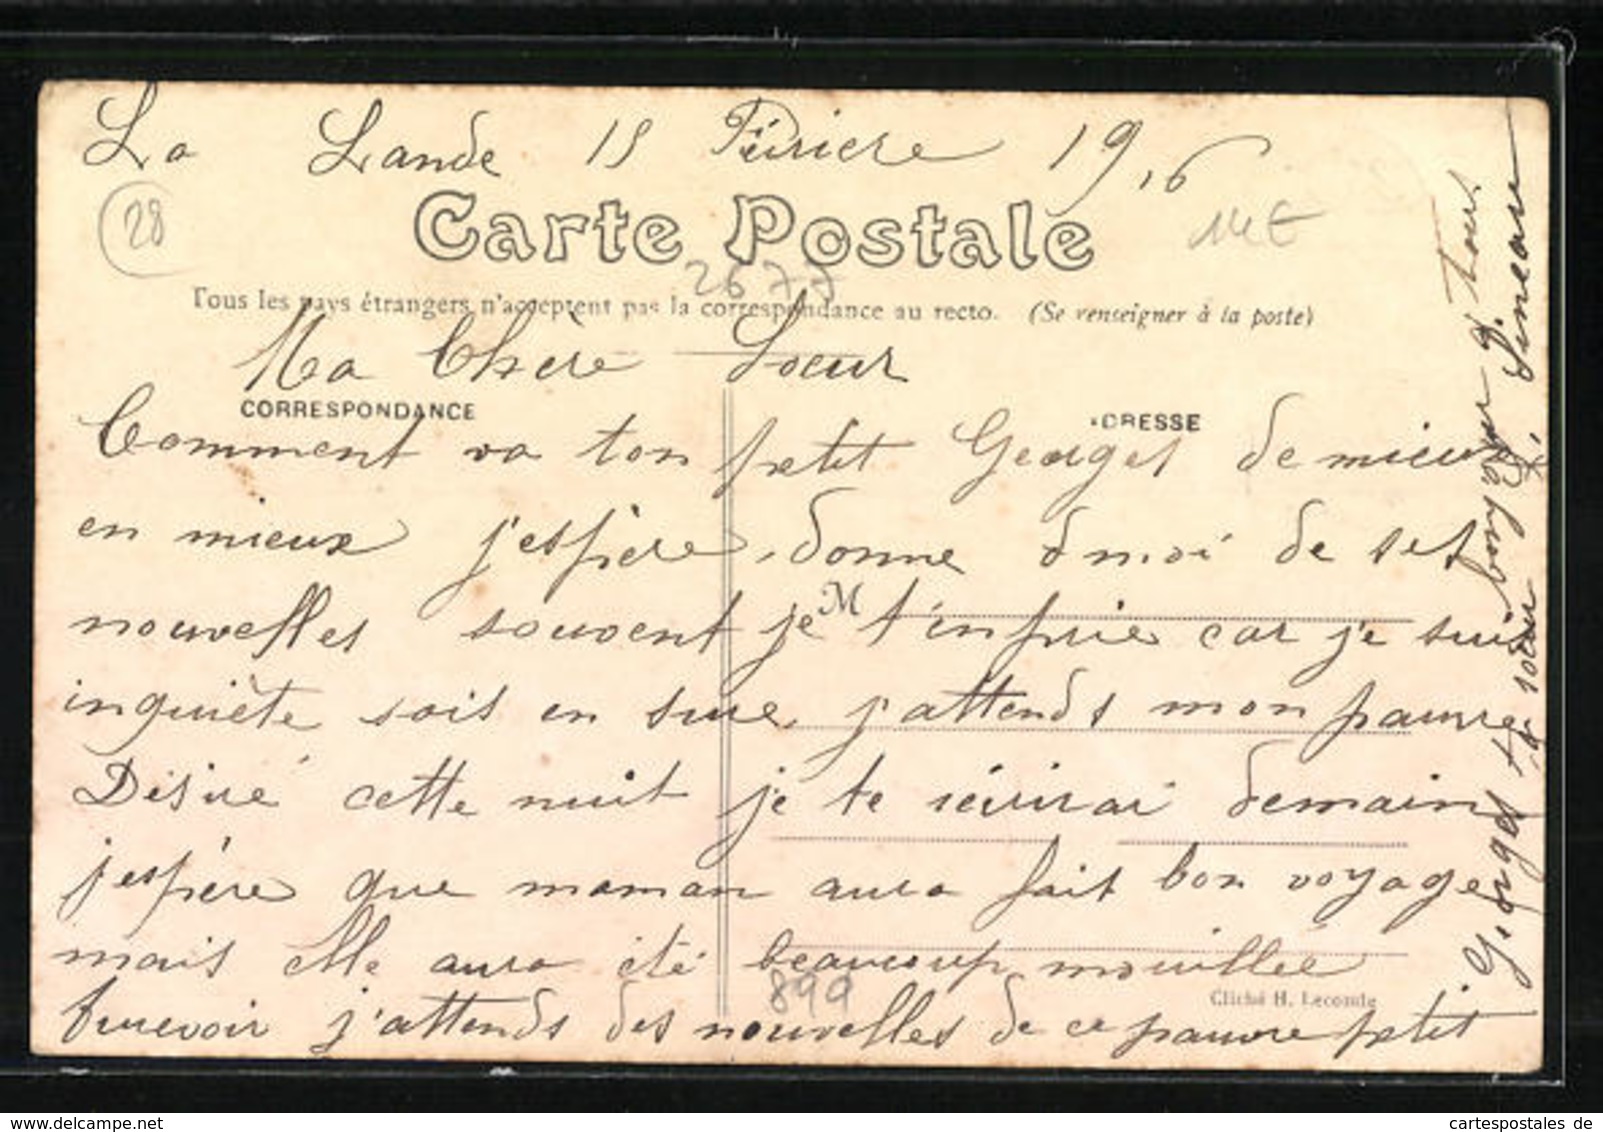 La Lande 15 Févriere 1916
28
Carte Postale
14E
2677
Tous les pays étrangers n'acceptent pas la correspondance au recto. (Se renseigner à la poste)
Ma Chère Soeur
CORRESPONDANCE
ADRESSE
Comment va ton petit Georget de mieux
en mieux j'espère, donne d moi de ses
nouvelles souvent je t'en prie car je suis
M
inquiète sois en sure j'attends mon pauvre
Désiré cette nuit je te réécrirai demain
j'espère que maman aura fait bon voyage
mais elle aura été beaucoup mouillée
899
Cliché H. Lecomte
aurevoir j'attends des nouvelles de ce pauvre petit
Georget bonjour a tous
ta soeur Simeane
www.cartespostales.de